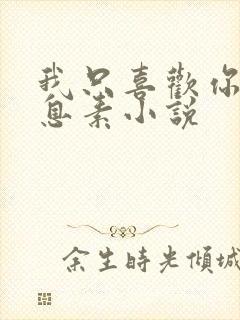 我只喜歡你
息素小說
余生時光傾城